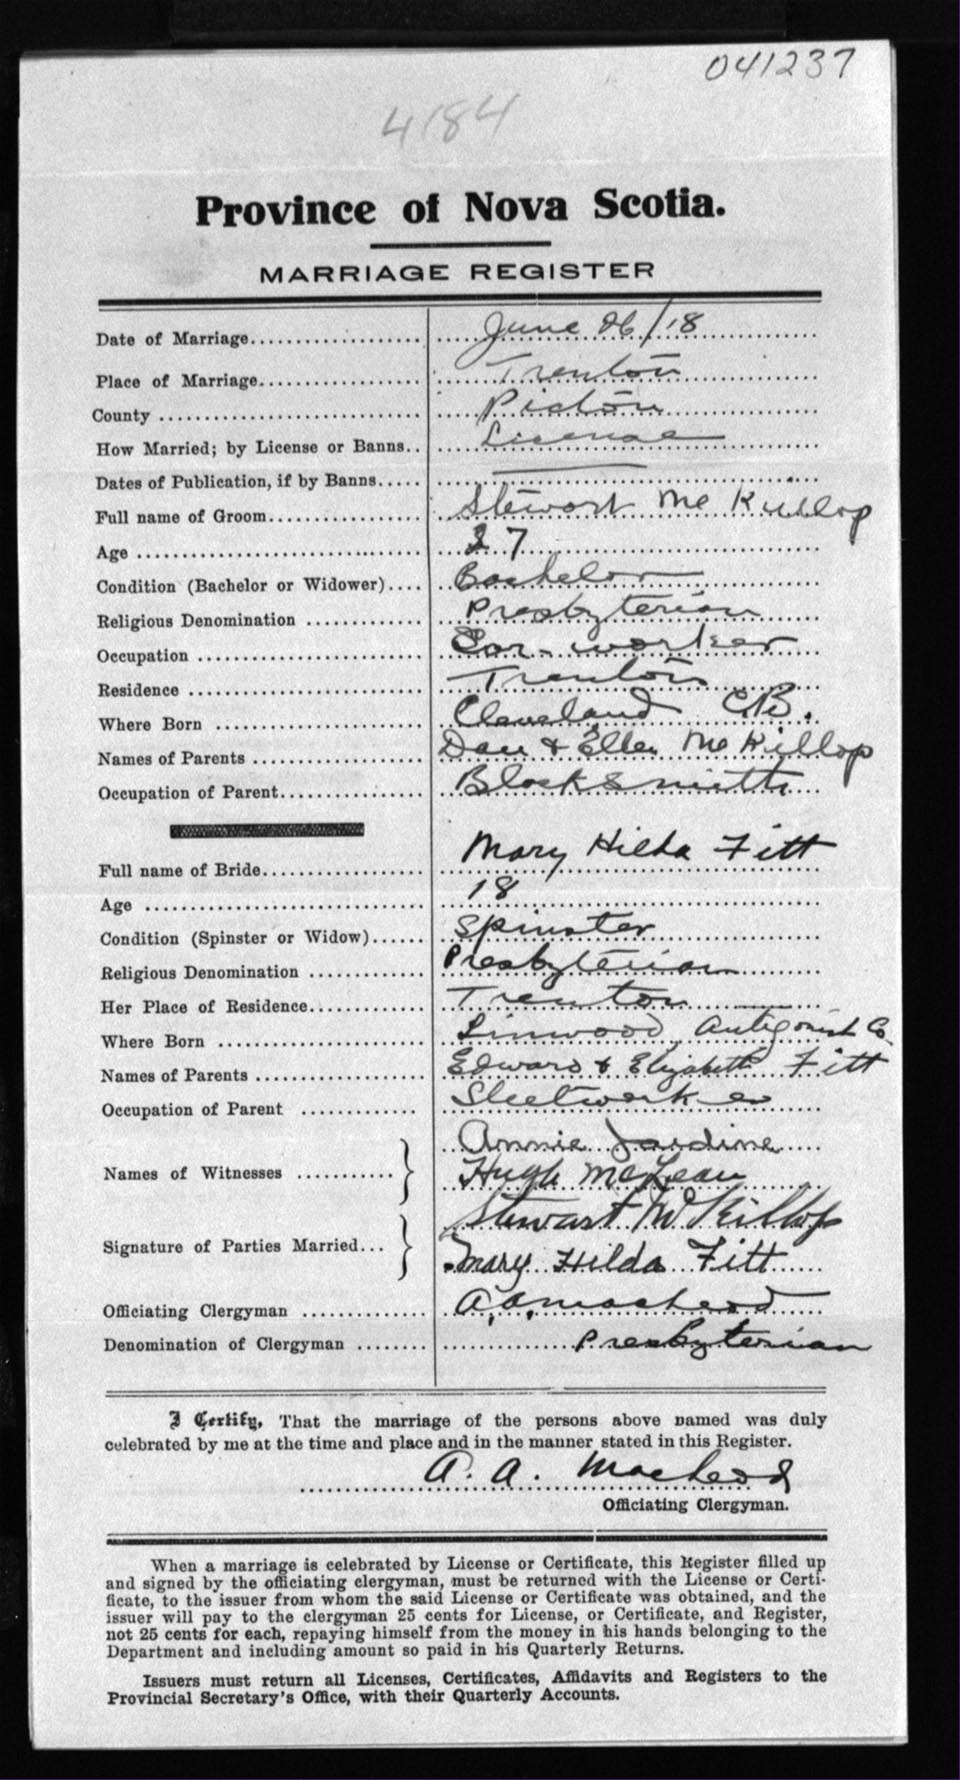 041237
4184
Province of Nova Scotia.
MARRIAGE REGISTER
Date of Marriage June 26/18
Place of Marriage Trenton
County Pictou
How Married; by License or Banns License
Dates of Publication, if by Banns
Full name of Groom Stewart McKillop
Age 27
Condition (Bachelor or Widower) Bachelor
Religious Denomination Presbyterian
Occupation Car-worker
Residence Trenton
Where Born Cleveland C.B.
Names of Parents Dan & Ellen McKillop
Occupation of Parent Blacksmith
Full name of Bride Mary Hilda Fitt
Age 18
Condition (Spinster or Widow) Spinster
Religious Denomination Presbyterian
Her Place of Residence Trenton
Where Born Linwood Antigonish Co.
Names of Parents Edward & Elizabeth Fitt
Occupation of Parent Steelworker
Names of Witnesses Annie Jardine
Hugh McLean
Signature of Parties Married Stewart McKillop
Mary Hilda Fitt
Officiating Clergyman A. A. MacLeod
Denomination of Clergyman Presbyterian
I Certify, That the marriage of the persons above named was duly
celebrated by me at the time and place and in the manner stated in this Register.
A. A. MacLeod
Officiating Clergyman.
When a marriage is celebrated by License or Certificate, this Register filled up
and signed by the officiating clergyman, must be returned with the License or Certi-
ficate, to the issuer from whom the said License or Certificate was obtained, and the
issuer will pay to the clergyman 25 cents for License, or Certificate, and Register,
not 25 cents for each, repaying himself from the money in his hands belonging to the
Department and including amount so paid in his Quarterly Returns.
Issuers must return all Licenses, Certificates, Affidavits and Registers to the
Provincial Secretary's Office, with their Quarterly Accounts.